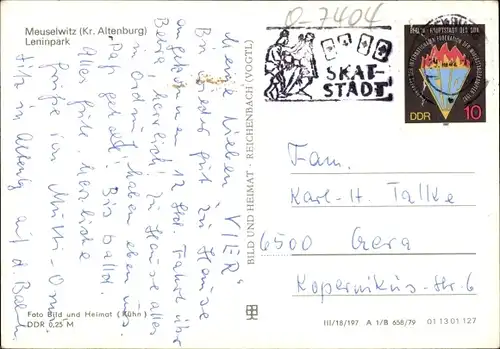 Meuselwitz (Kr. Altenburg)
Leninpark
O-7404
SKAT-
STADT
BERLIN HAUPTSTADT DER DDR
DDR
10
Meine lieben VIER"
Bin wieder gut zu Hause
angekommen 12 Std. Fahrt über
herrlich! zu Hause alles
in Ordn. haben eben uns.
Pap gehabt! Bis bald.
Alles gute, herzliche
Grüße von Mutti-Oma
Sitz in Altenbg auf d Bahn
BILD UND HEIMAT · REICHENBACH (VOGTL)
Fam.
Karl-H. Talke
6500 Gera
Kopernikus-Str. 6
Foto Bild und Heimat (Kühn)
DDR 0,25 M
III/18/197 A 1/B 658/79 01 13 01 127